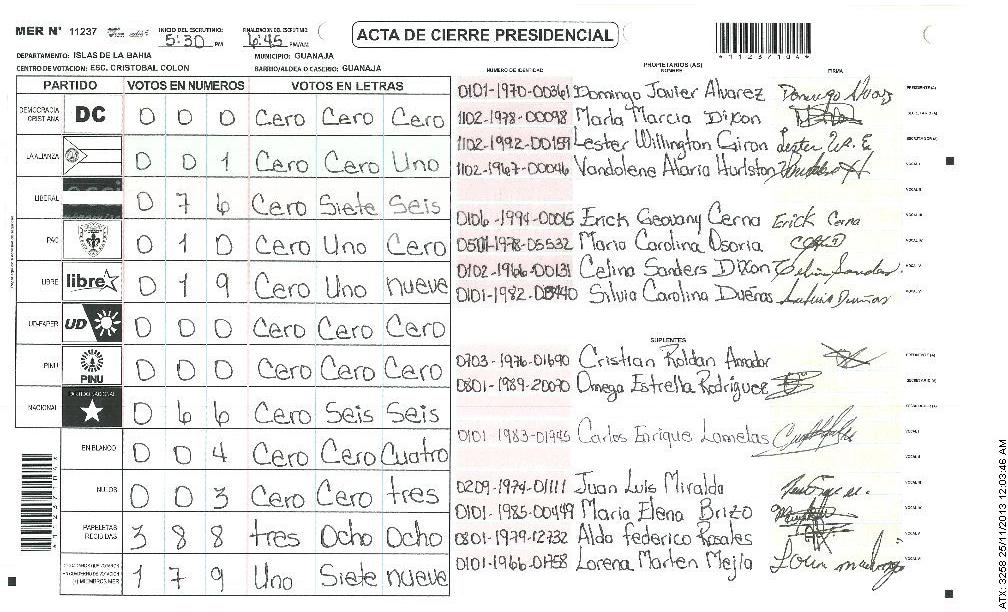 MER N° 11237 INICIO DEL ESCRUTINIO: 5:30 PM FINALIZACION DEL ESCRUTINIO: 6:45 PM/AM ACTA DE CIERRE PRESIDENCIAL *11237104*
DEPARTAMENTO: ISLAS DE LA BAHIA MUNICIPIO: GUANAJA
CENTRO DE VOTACION: ESC. CRISTOBAL COLON BARRIO/ALDEA O CASERIO: GUANAJA
PARTIDO VOTOS EN NUMEROS VOTOS EN LETRAS
DEMOCRACIA CRISTIANA DC 0 0 0 Cero Cero Cero
LA ALIANZA 0 0 1 Cero Cero Uno
LIBERAL 0 7 6 Cero Siete Seis
PAC 0 1 0 Cero Uno Cero
LIBRE libre 0 1 9 Cero Uno nueve
UD-FAPER UD 0 0 0 Cero Cero Cero
PINU PINU 0 0 0 Cero Cero Cero
NACIONAL PARTIDO NACIONAL 0 6 6 Cero Seis Seis
EN BLANCO 0 0 4 Cero Cero Cuatro
NULOS 0 0 3 Cero Cero tres
PAPELETAS RECIBIDAS 3 8 8 tres Ocho Ocho
1 7 9 Uno Siete nueve
NUMERO DE IDENTIDAD PROPIETARIOS (AS) NOMBRE FIRMA
0101-1970-00361 Domingo Javier Alvarez
1102-1978-00098 Marla Marcia Dixon
1102-1992-00159 Lester Willington Giron
1102-1967-00046 Vandolene Alaria Hurlston
0106-1994-00015 Erick Geovany Cerna Erick Cerna
0501-1978-05532 Maria Carolina Osoria
0102-1966-00131 Celina Sanders Dixon
0101-1982-00440 Silvia Carolina Dueñas
SUPLENTES
0703-1976-01690 Cristian Roldan Amador
0801-1989-20090 Omega Estrella Rodríguez
0101-1983-01945 Carlos Enrique Lamelas
0209-1974-01111 Juan Luis Miralda
0101-1985-00449 Maria Elena Brizo
0801-1979-12732 Aldo federico Rosales
0101-1966-01758 Lorena Marten Mejía
ATX: 3258 25/11/2013 12:03:46 AM